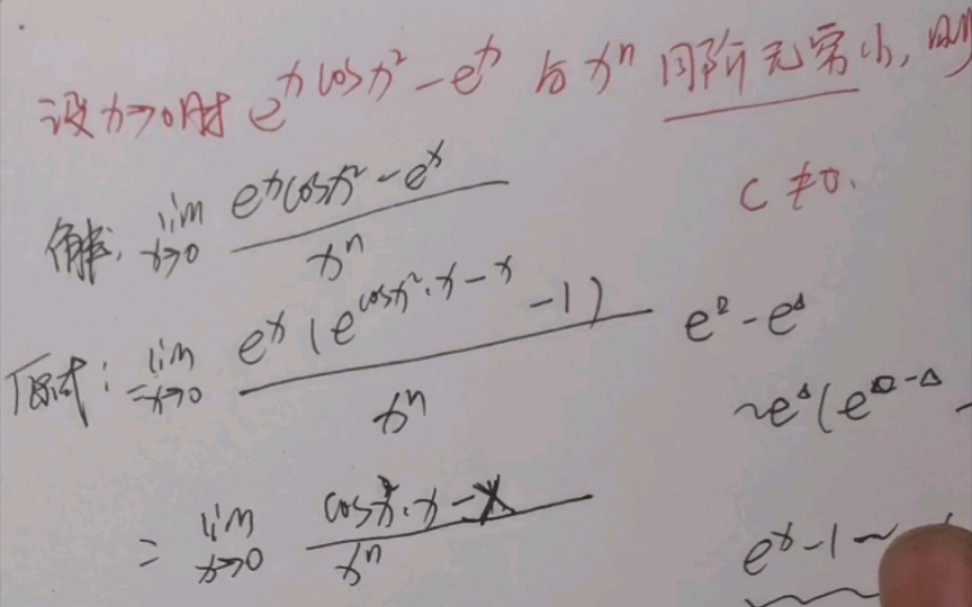 设x→0时 e^{x cos x²} - e^x 与 x^n 同阶无穷小, 则
C ≠ 0.
解: lim_{x→0} \frac{e^{x cos x²} - e^x}{x^n}
原式: = lim_{x→0} \frac{e^x (e^{cos x² · x - x} - 1)}{x^n}
e^□ - e^△
~ e^△ (e^{□-△} -
= lim_{x→0} \frac{cos x² · x - x}{x^n}
e^x - 1 ~